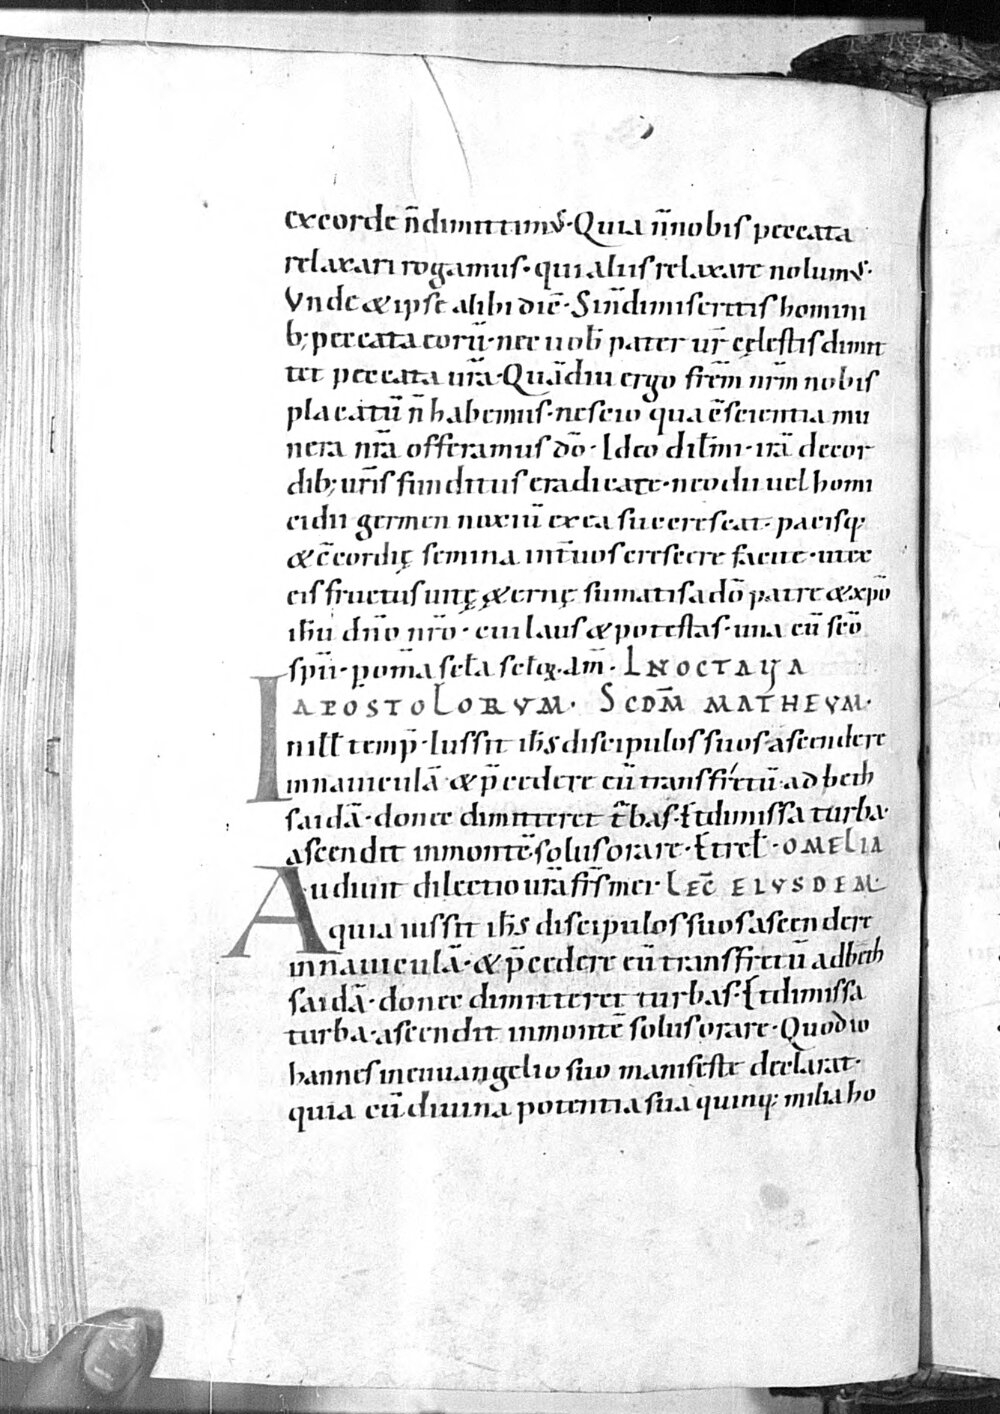 ex corde n̄ dimittimus. Quia n̄ nobis peccata
relaxari rogamus. qui aliis relaxare nolumus.
Vnde & ipse alibi dic̄. Si n̄ dimiseritis homini
b; peccata eorū. nec uob̄ pater ur̄ cęlestis dimit
tet peccata ur̄a. Quādiu ergo fr̄em nr̄m nobis
placatū n̄ habemus. nescio qua c̄scientia mu
nera nr̄a offeramus dō. Ideo dil̄mi. irā de cor
dib; ur̄is funditus eradicate. ne odii uel homi
cidii germen noxiū ex ea succrescat. pacisq;
& c̄cordię semina int̄ uos crescere facite. uice
eis fructus uitę & ernę sumatis a dō patre & xp̄o
ih̄u dn̄o nr̄o. cui laus & potestas. una cū sc̄o
sp̄u. p om̄a sc̄la sc̄loꝝ. am̄. IN OCTAVA
APOSTOLORVM. SCDM̄ MATHEVM.
In ill̄ temp̄. Iussit ih̄s discipulos suos ascendere
in nauiculā. & p̄cedere eū trans fretū. ad beth
saidā. donec dimitteret t̄bas. Et dimissa turba.
ascendit in montē solus orare. Et rel̄. OMELIA
Audiuit dilectio ur̄a fr̄s mei. LEC̄ EIVSDEM
quia iussit ih̄s discipulos suos ascendere
in nauiculā. & p̄cedere eū trans fretū ad beth
saidā. donec dimitteret turbas. Et dimissa
turba. ascendit in montē solus orare. Quod io
hannes in euuangelio suo manifeste declarat.
quia cū diuina potentia sua quinq; milia ho